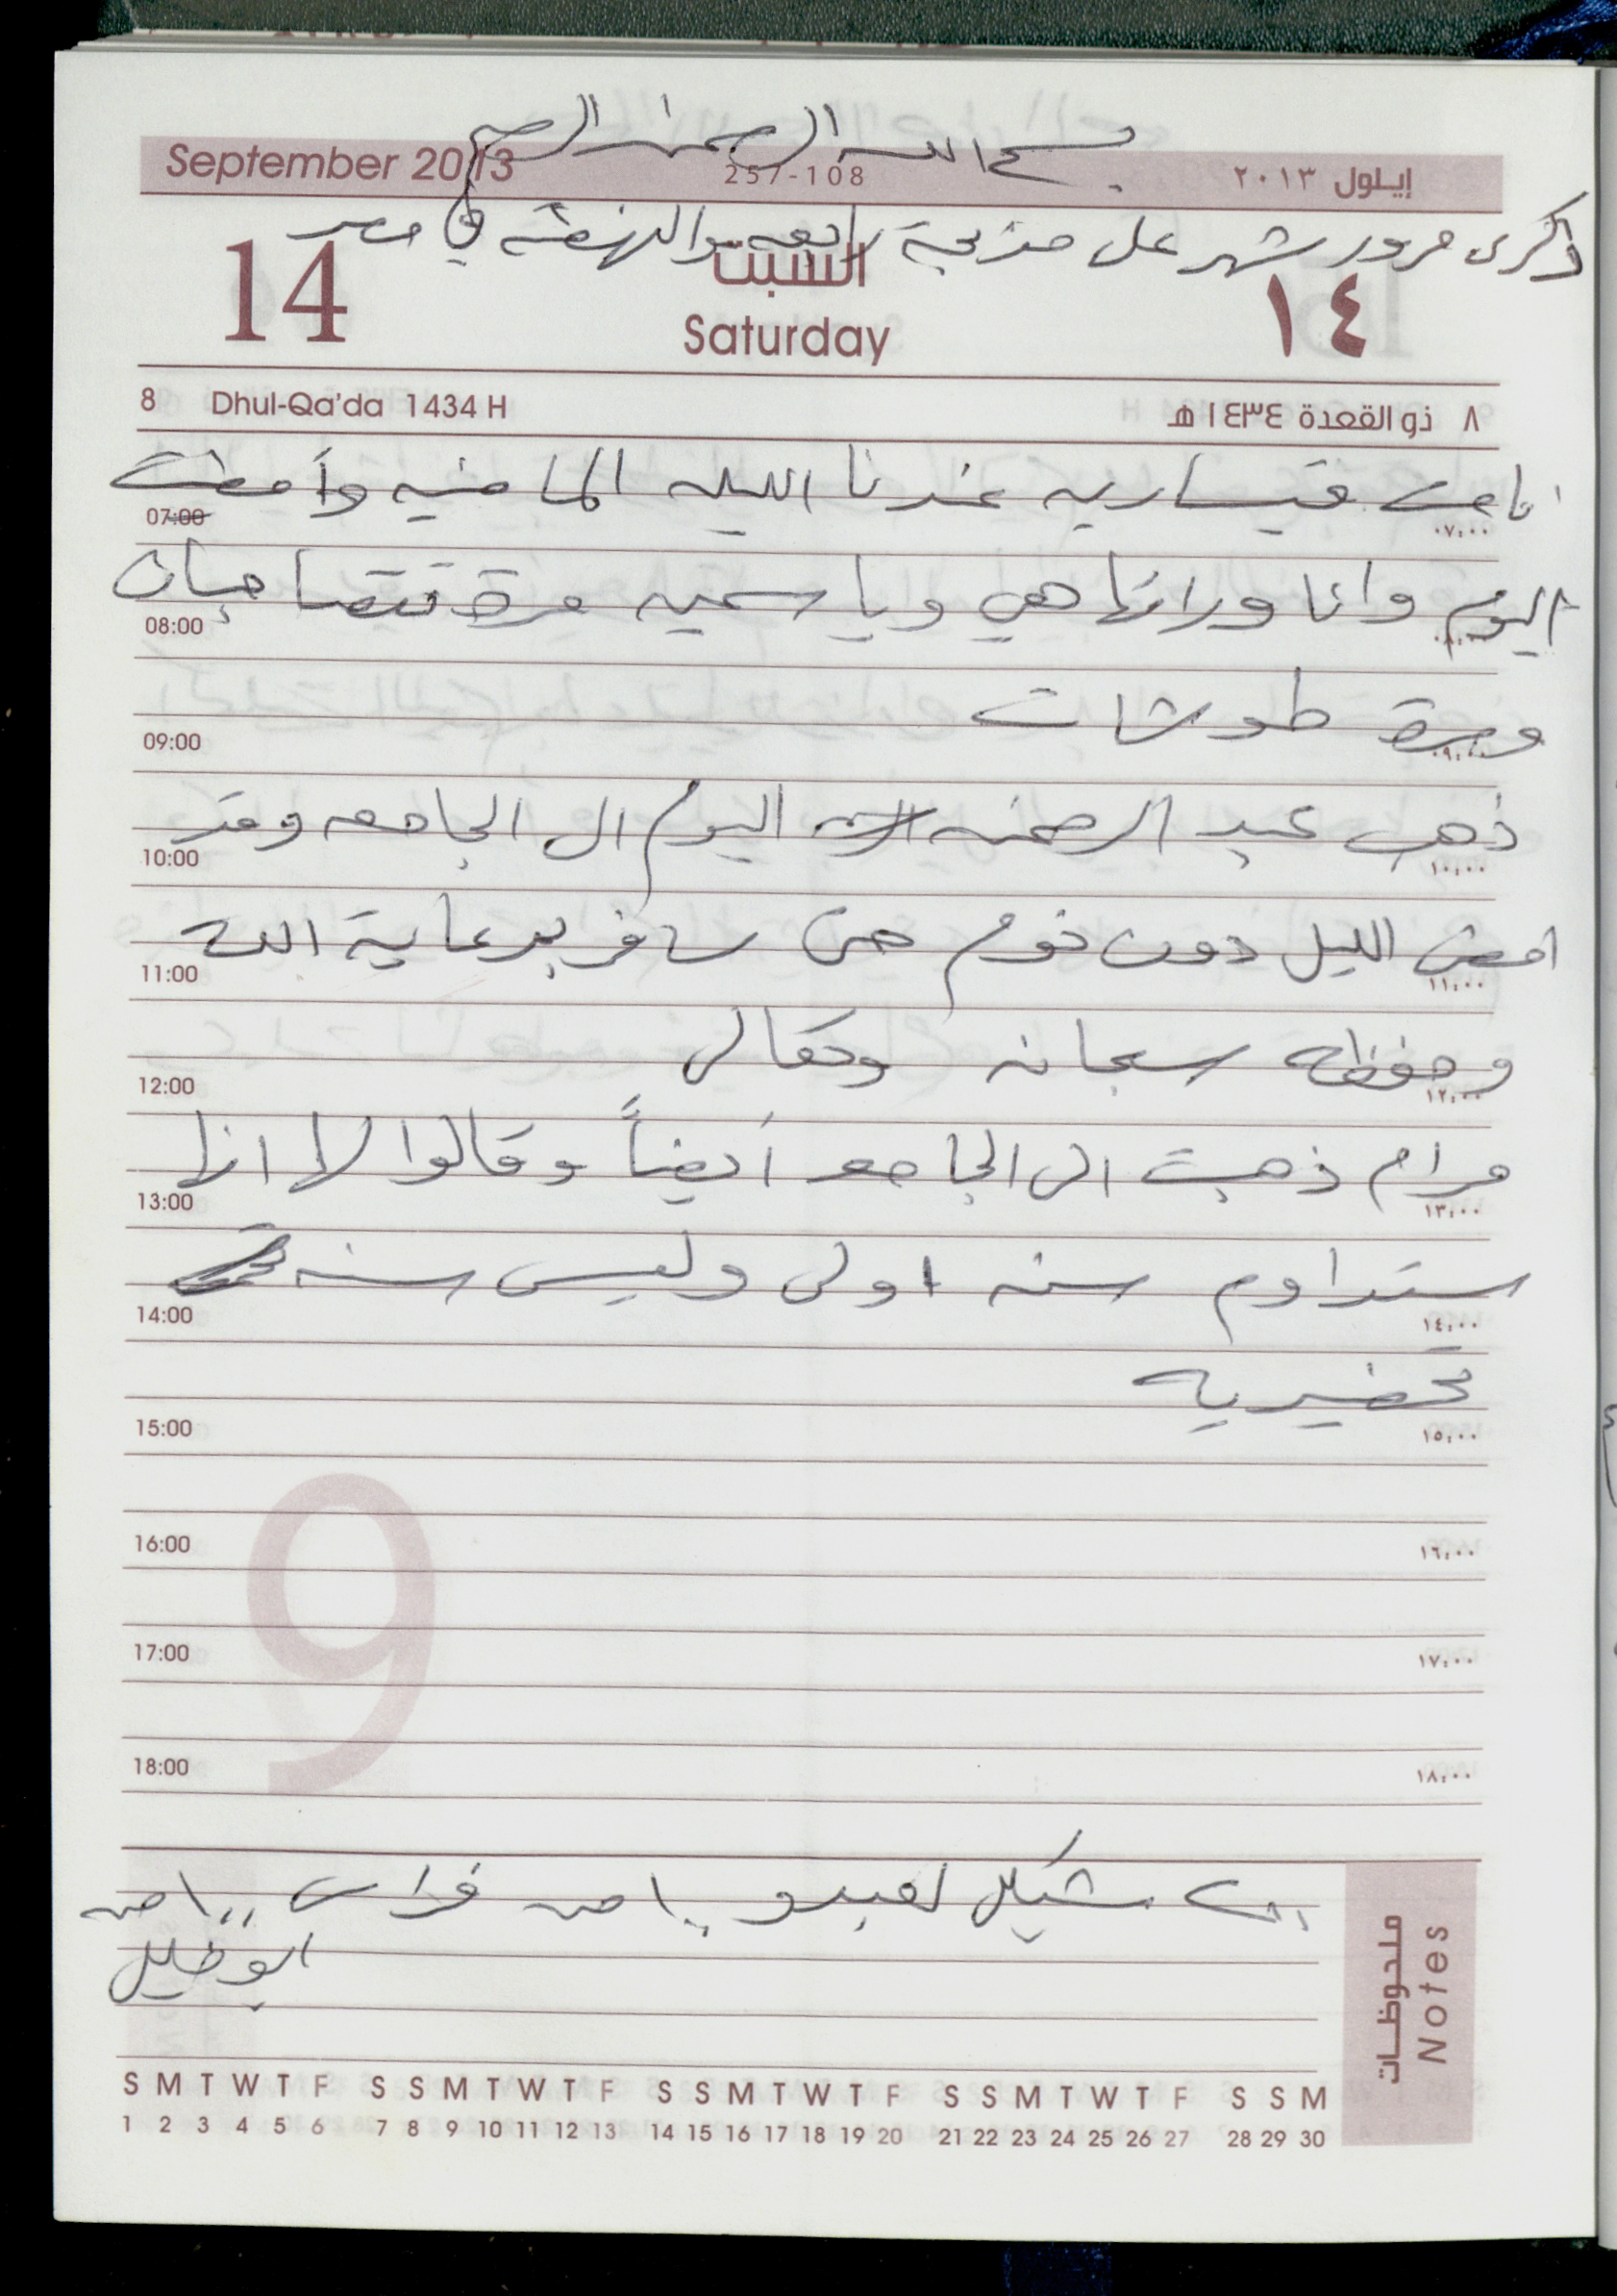 بسم الله الرحمن الرحيم
September 2013 257-108 إيلول ٢٠١٣
ذكرى مرور شهر على مذبحة رابعه والنهضه في مصر
14 السبت ١٤
Saturday
8 Dhul-Qa'da 1434 H ٨ ذو القعدة ١٤٣٤ هـ
نامت قيساريه عندنا الليله الماضيه وأمضت
07:00 ٠٧,٠٠
اليوم وانا وراءها هي وياسميه مرة تتصاحبان
08:00 ٠٨,٠٠
ومرة طوشات
09:00 ٠٩,٠٠
ذهب عبد الرحمن اليوم الى الجامعه وقد
10:00 ١٠,٠٠
امضى الليل دون نوم حتى سافر برعاية الله
11:00 ١١,٠٠
وحفظه سبحانه وتعالى
12:00 ١٢,٠٠
مرام ذهبت الى الجامعه أيضاً وقالوا لها انها
13:00 ١٣,٠٠
ستداوم سنه اولى وليس سنه
14:00 ١٤,٠٠
تحضيريه
15:00 ١٥,٠٠
16:00 ١٦,٠٠
17:00 ١٧,٠٠
9
18:00 ١٨,٠٠
شيكل لعبدو من فراس من
ابو خليل
ملحوظات Notes
S M T W T F S S M T W T F S S M T W T F S S M T W T F S S M
1 2 3 4 5 6 7 8 9 10 11 12 13 14 15 16 17 18 19 20 21 22 23 24 25 26 27 28 29 30